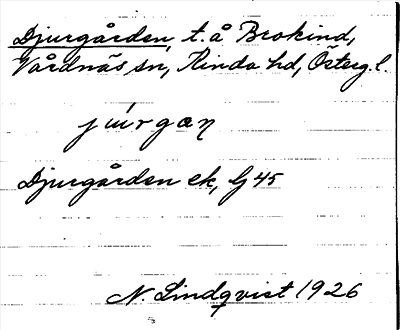 Djurgården, t. å Brokind,
Vårdnäs sn, Kinda hd, Österg.l.
Djurgården ek, G 45
N. Lindqvist 1926